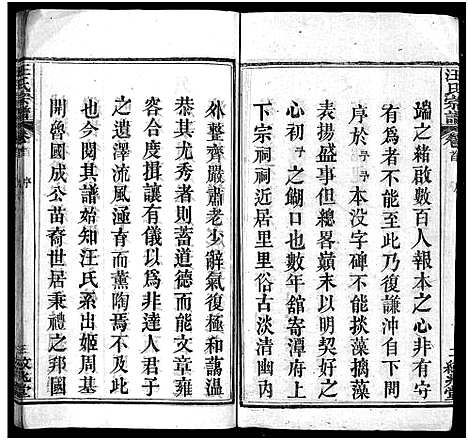 汪氏宗譜
端之緒啟數百人報本之心非有
有為者不能至此乃復謙沖自下問
序於予予本没字碑不能掞藻摛藻
表揚盛事但總畧嵗末以明契好於
心初予之餬口也數年舘寄潭府上
下宗祠祠近居里里俗古淡清幽
外整齊嚴肅老少辭氣復和藹温
恭其尤秀者則蓄道德而能文章雍
容合度揖讓有儀以為非達人君子
之遺澤流風涵育而薰陶焉不及此
也今閱其譜始知汪氏系出姬周基
開魯國成公苗裔世居秉禮之邦國
汪氏宗譜
卷首
序